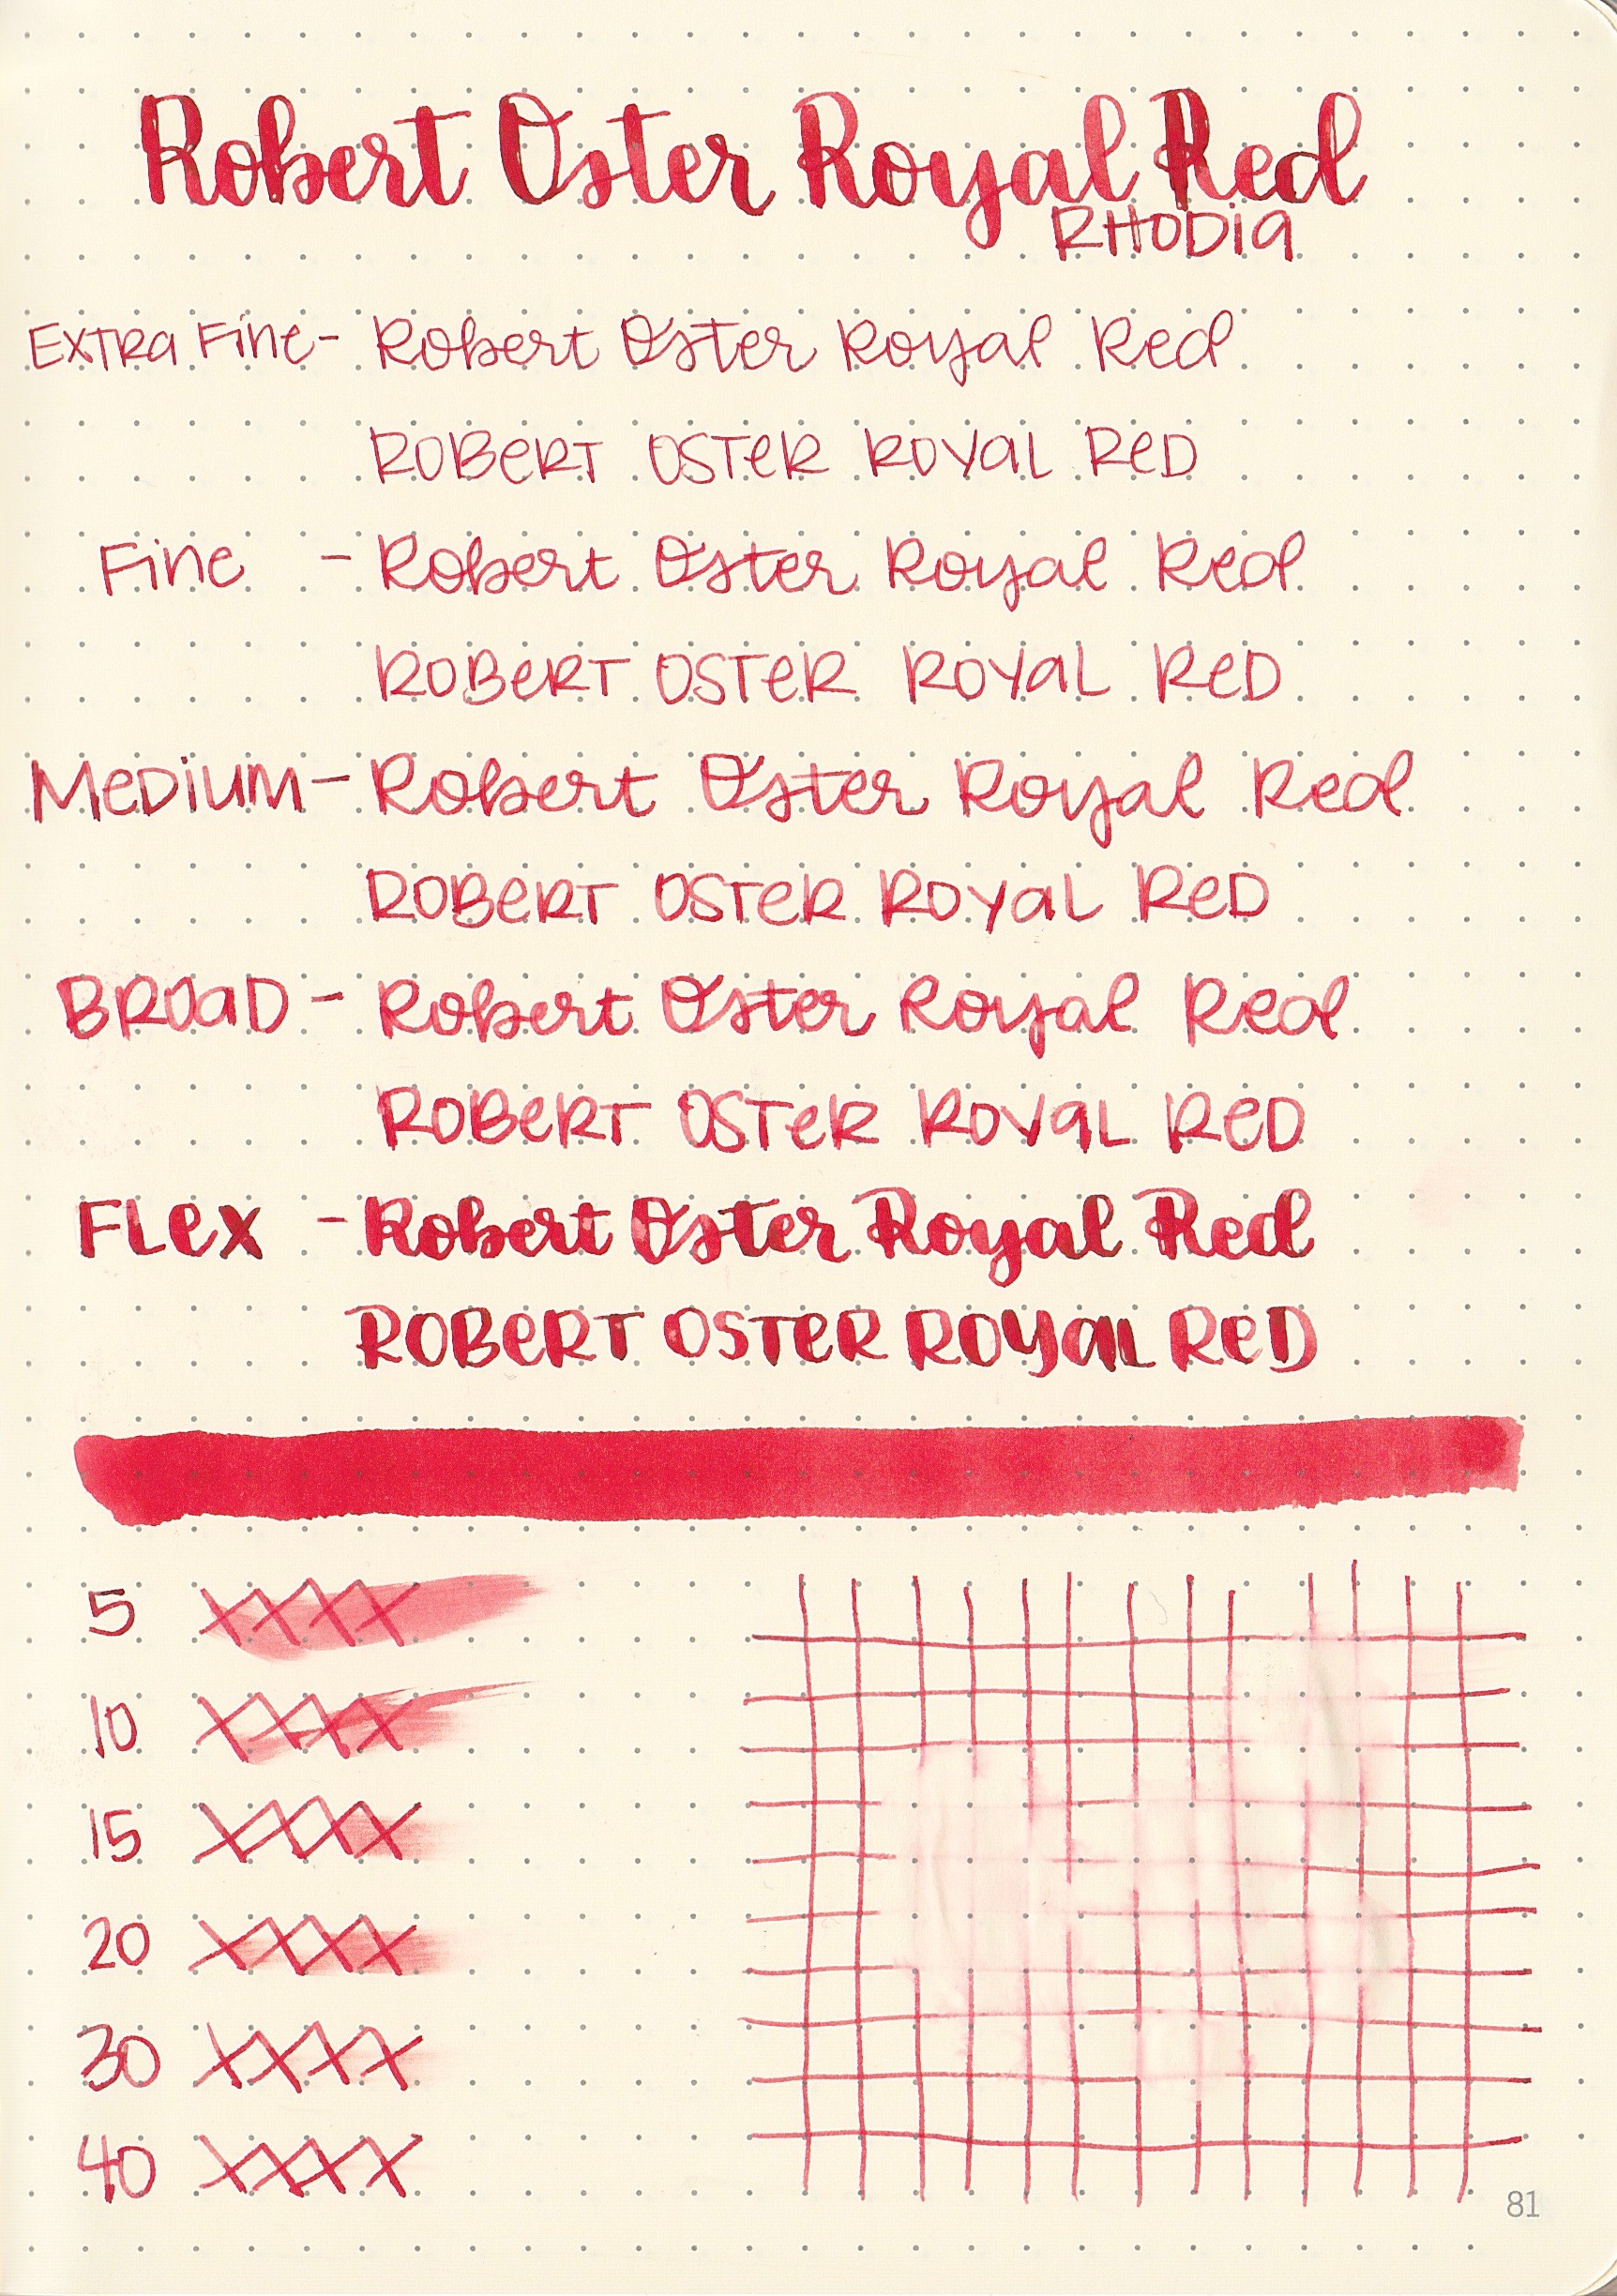 Robert Oster Royal Red
RHODIa
EXTRa Fine- Robert Oster Royal Red
ROBeRT OSTeR ROYaL ReD
Fine - Robert Oster Royal Red
ROBeRT OSTeR ROYaL ReD
MeDiUM- Robert Oster Royal Red
ROBeRT OSTeR ROYaL ReD
BROaD - Robert Oster Royal Red
ROBeRT OSTeR ROYaL ReD
FLex - Robert Oster Royal Red
ROBeRT OSTeR ROYaL ReD
5 XXXX
10 XXXX
15 XXXX
20 XXXX
30 XXXX
40 XXXX
81